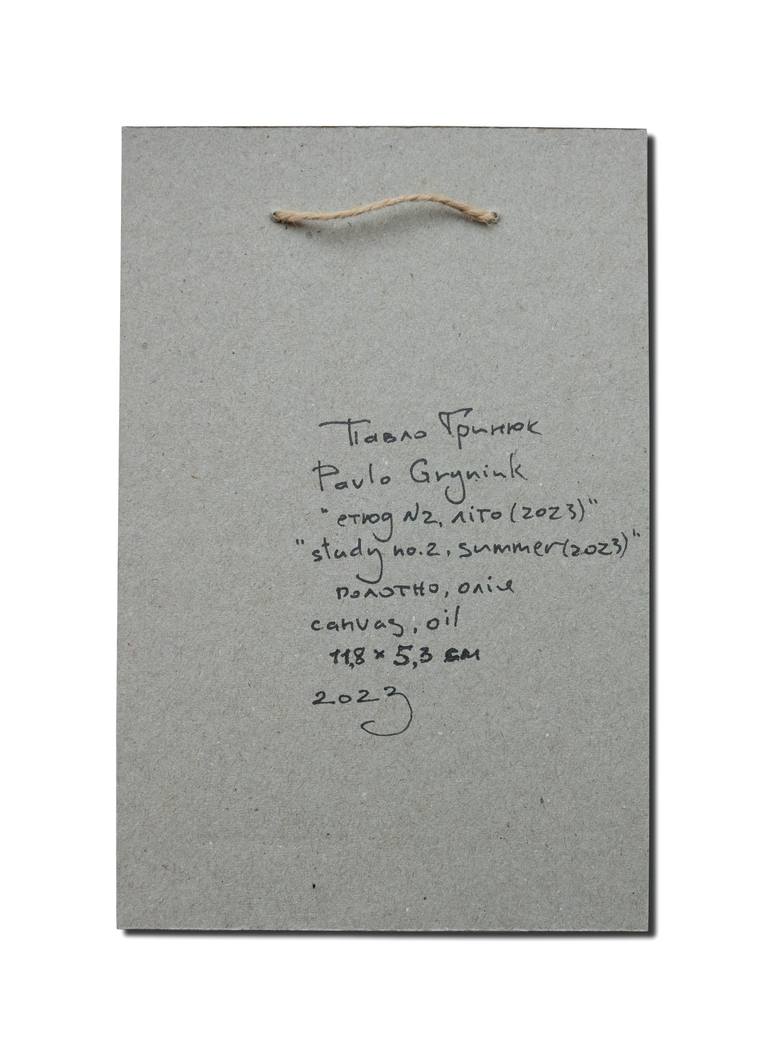 Павло Гринюк
Pavlo Gryniuk
"етюд N2, літо (2023)"
"study no.2, summer (2023)"
полотно, олія
canvas, oil
11,8 × 5,3 см
2023